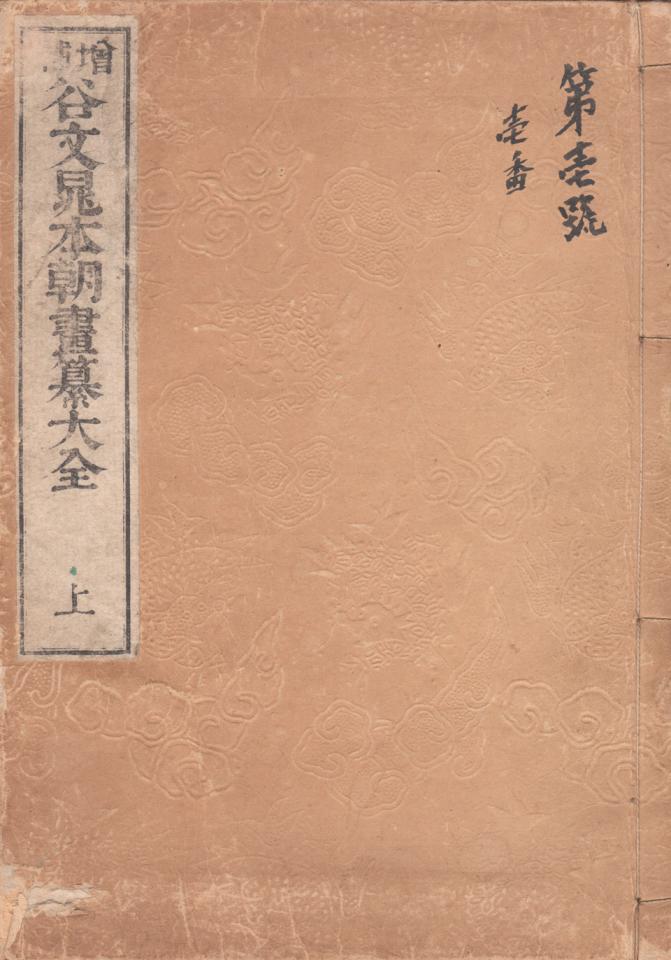 第壱號
壱番
増
谷文晁本朝畫纂大全
上